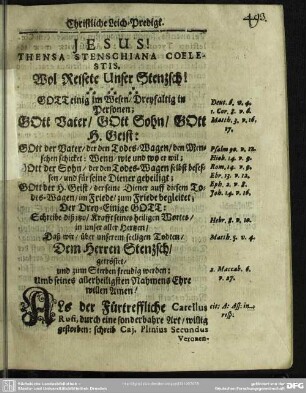 Christliche Leich-Predigt.
493.
JESUS!
THENSA STENSCHIANA COELE-
STIS.
Wol Reisete Unser Stenzsch!
GOTT einig im Wesen/ Dreyfaltig in
Personen;
Deut. 6, v. 4.
1. Cor. 8. v. 6.
GOtt Vater/ GOtt Sohn/ GOtt
H. Geist:
Matth. 3, v. 16,
17.
GOtt der Vater/ der den Todes-Wagen/ den Men-
schen schicket: Wenn/ wie und wo er wil;
Psalm 90. v. 12.
Hiob. 14. v. 5.
GOtt der Sohn/ der den Todes-Wagen selbst beses-
sen/ und für seine Diener geheiliget;
Rom. 14. v. 9.
Ebr. 13. v. 12.
GOtt der H. Geist/ der seine Diener auff diesem To-
des-Wagen/ im Friede/ zum Friede begleitet;
Eph. 2. v. 8.
Joh. 14. v. 16.
Der Drey-Einige GOTT:
Schreibe dißitzo/ Krafft seines heiligen Wortes/
in unser aller Hertzen/
Hebr. 8. v. 10.
Daß wir/ über unserem seeligen Todten/
Matth. 5. v. 4.
Dem Herren Stenzsch/
getröstet/
und zum Sterben freudig werden:
2. Maccab. 6.
v. 27.
Umb seines allerheiligsten Nahmens Ehre
willen Amen!
ALs der Fürtreffliche Carellus
Rufi, durch eine sonderbahre Art/ willig
gestorben: schrieb Caj. Plinius Secundus
Veronen-